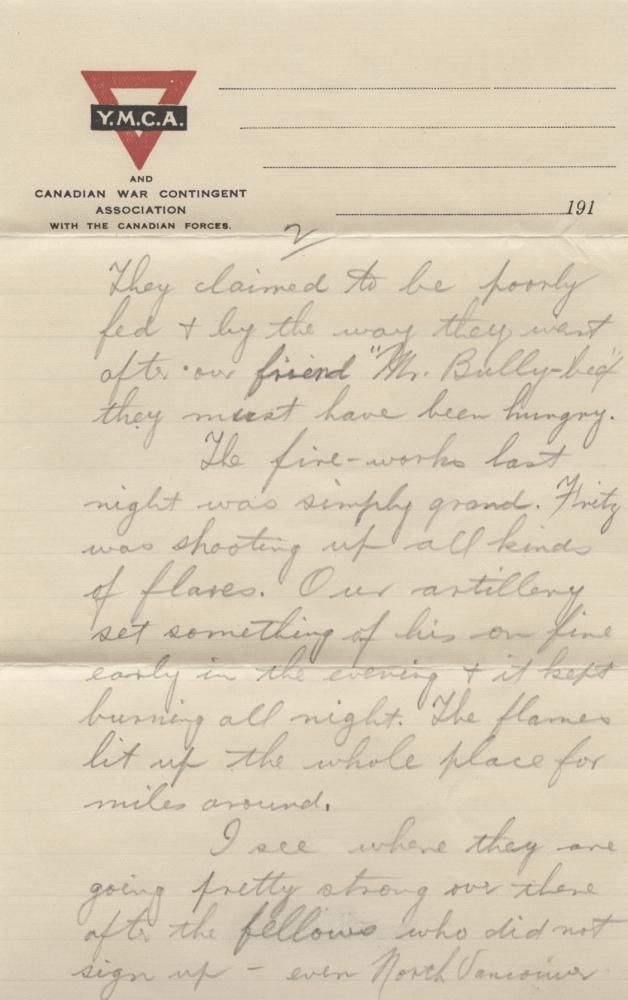 Y.M.C.A.
AND
CANADIAN WAR CONTINGENT
ASSOCIATION
WITH THE CANADIAN FORCES.
191
2
They claimed to be poorly
fed + by the way they went
after our friend "Mr. Bully-beef"
they must have been hungry.
The fire-works last
night was simply grand. Fritz
was shooting up all kinds
of flares. Our artillery
set something of his on fire
early in the evening + it kept
burning all night. The flames
lit up the whole place for
miles around.
I see where they are
going pretty strong over there
after the fellows who did not
sign up - even North Vancouver